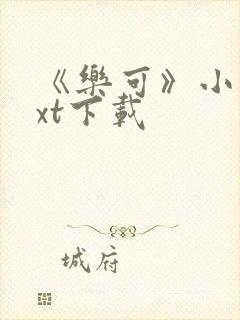 《樂可》小
xt下載
城府